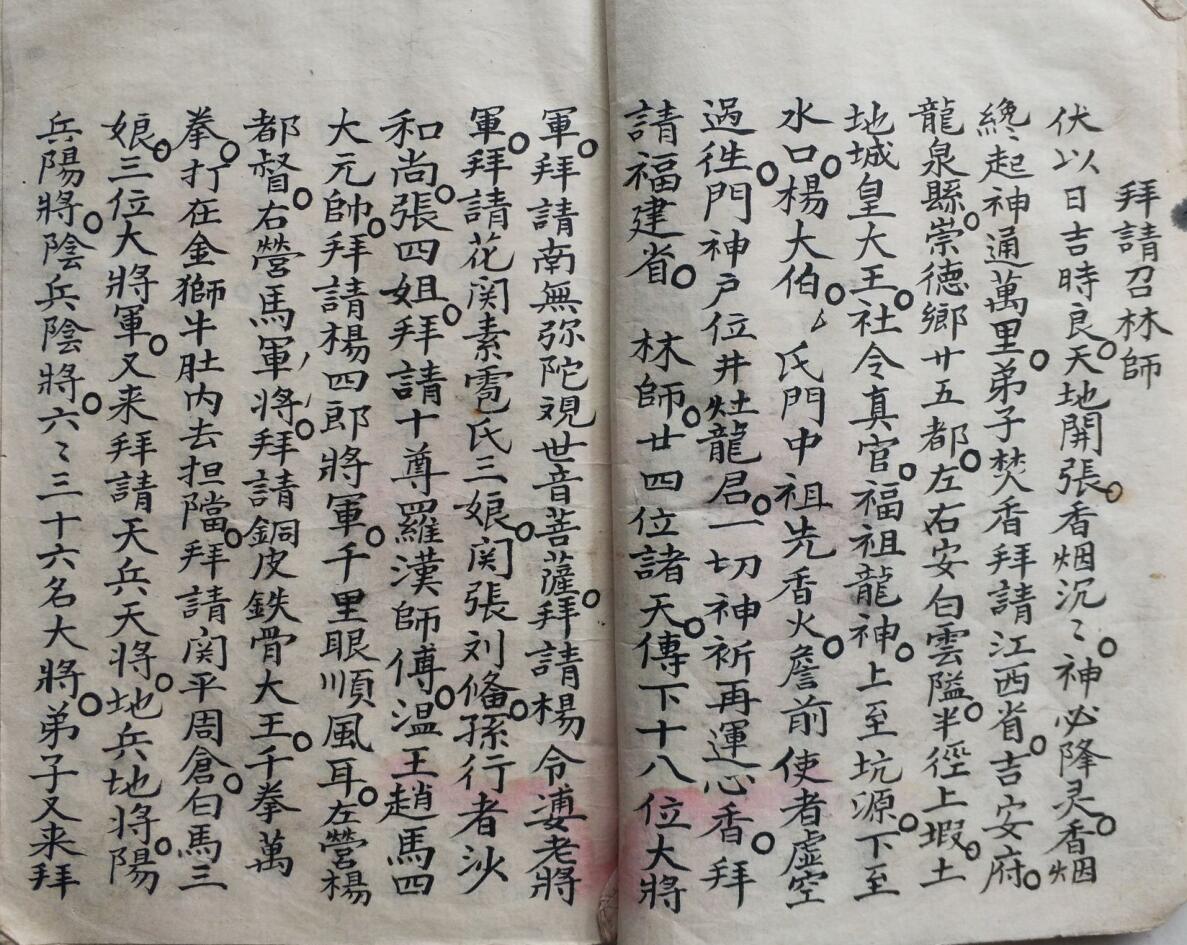 拜請召林師
伏以日吉時良。天地開張。香烟沉〻。神必降灵。香烟
纔起神通萬里。弟子焚香拜請江西省。吉安府。
龍泉縣。崇德鄉廿五都。左右安白雲隘。半徑上堨。土
地城皇大王。社令真官。福祖龍神。上至坑源。下至
水口。楊大伯。氏門中祖先香火。詹前使者虛空
過徃。門神户位井灶龍君。一切神祈再運心香。拜
請福建省。林師。廿四位諸天。傳下十八位大將
軍。拜請南無弥陀覌世音菩薩。拜請楊令婆老將
軍。拜請花関索雹氏三娘。関張刘俻。孫行者沙
和尚。張四姐。拜請十尊羅漢師傅。温王趙馬四
大元帥。拜請楊四郎將軍。千里眼順風耳。左營楊
都督。右營馬軍將。拜請銅皮鉄骨大王。千拳萬
拳。打在金獅牛肚内去担隌。拜請関平周倉。白馬三
娘。三位大將軍。又来拜請天兵天將。地兵地將。陽
兵陽將。陰兵陰將。六〻三十六名大將。弟子又来拜